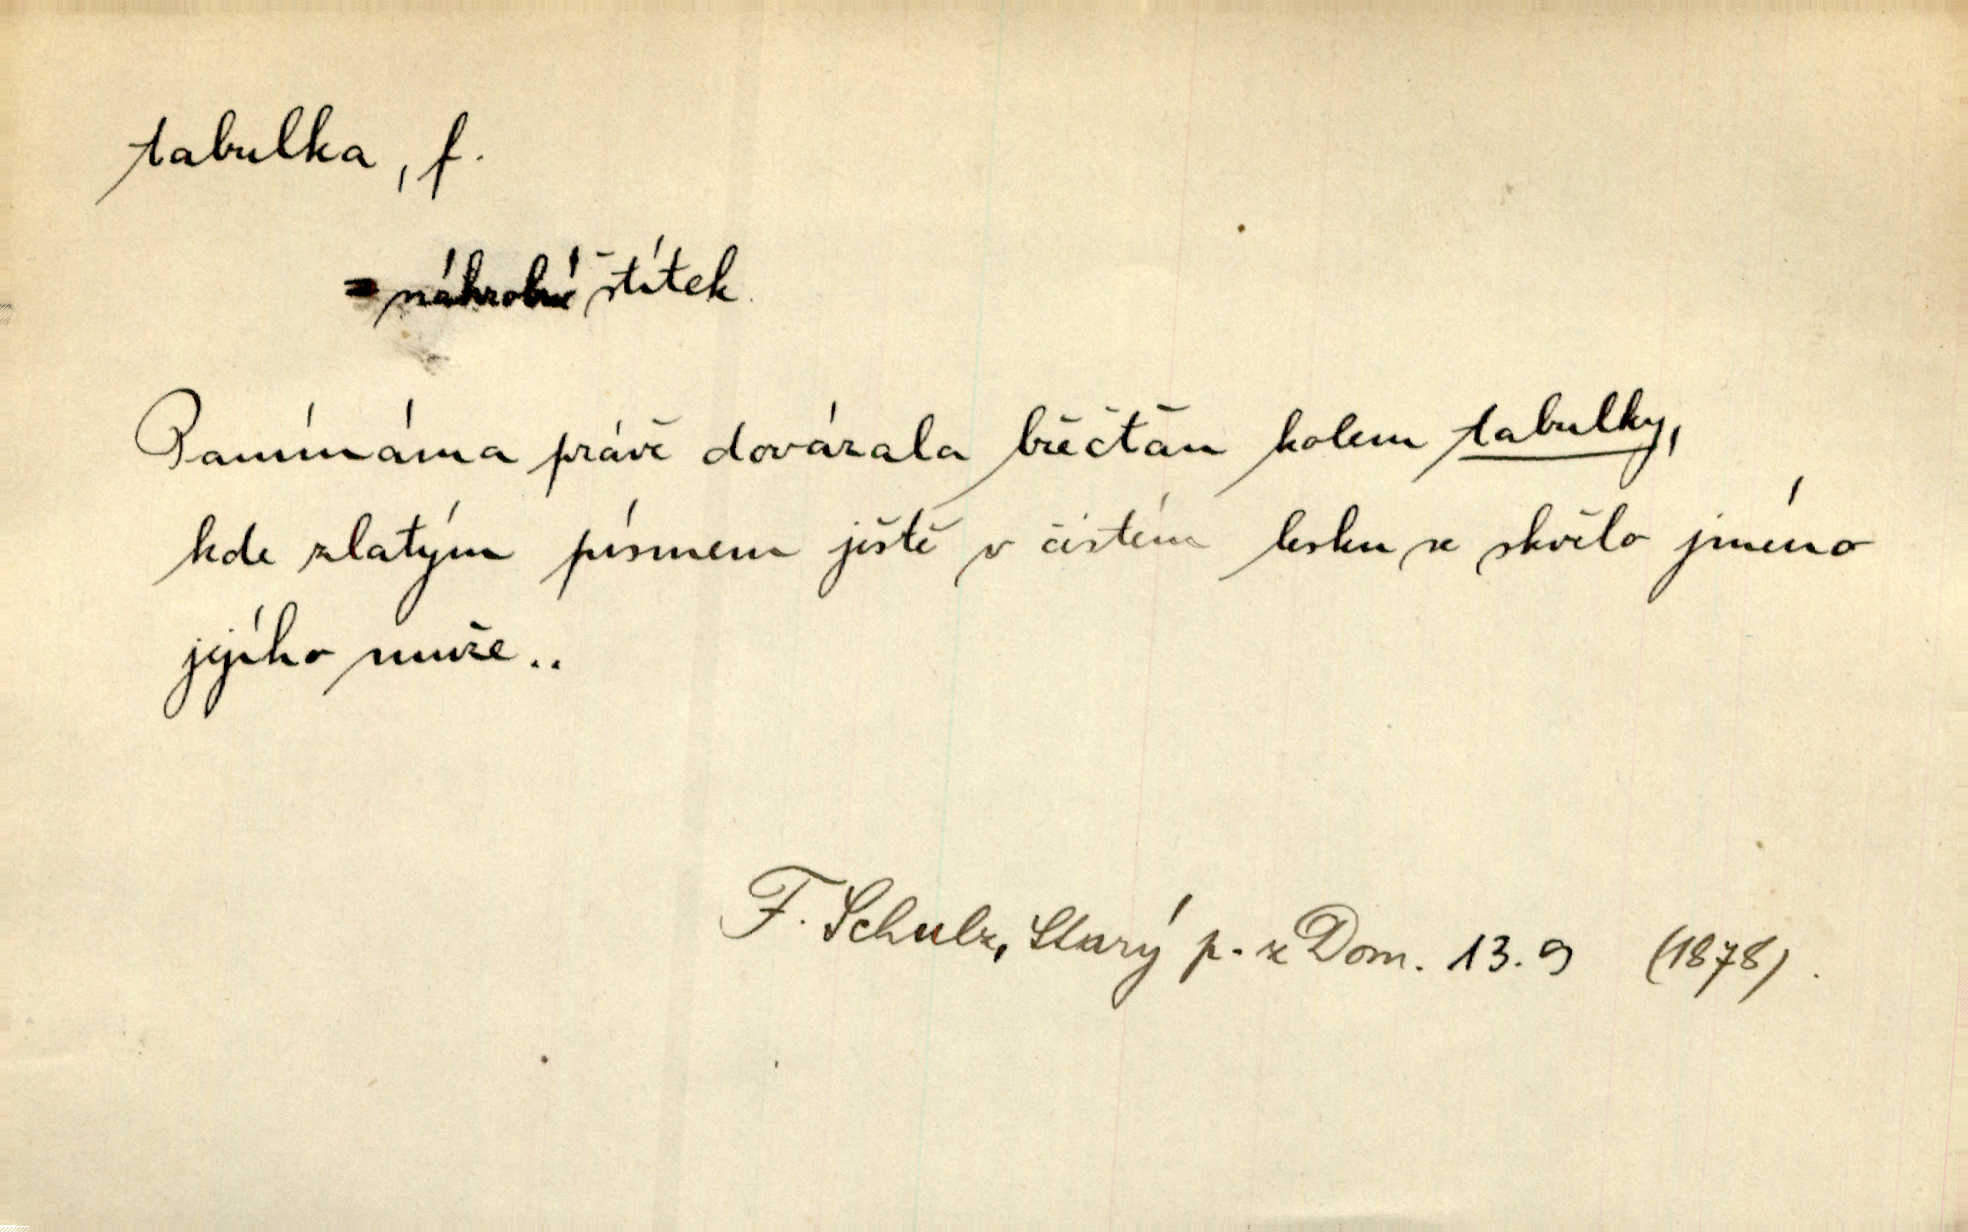 tabulka, f.
= náhrobní štítek.
Panímáma právě dovázala břečťan kolem tabulky,
kde zlatým písmem ještě v čistém lesku se skvělo jméno
jejího muže..
F. Schulz, Starý p. z Dom. 13. 9 (1878).